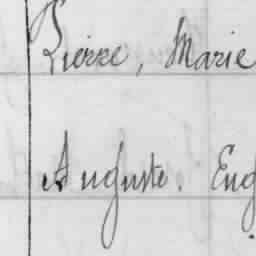 Pierre, Marie
Auguste. Eug